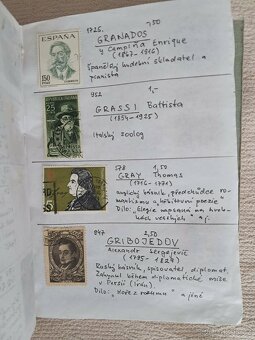 1725. 1,50
GRANADOS
y Campiña Enrique
(1867-1916)
Španělský hudební skladatel a
pianista
ESPAÑA
150
952 1,-
GRASSI Battista
(1854-1925)
Italský zoolog
25
578 1,50
GRAY Thomas
(1716-1771)
anglický básník, předchůdce ro-
mantismu a hřbitovní poezie
Dílo: "Elegie napsaná na hrob-
kách veských" aj.
847 2,50
GRIBOJEDOV
Alexandr Sergejevič
(1795-1829)
Ruský básník, spisovatel, diplomat.
Zahynul během diplomatické mise
v Persii (Írán).
Dílo: "Hoře z rozumu" a jiné